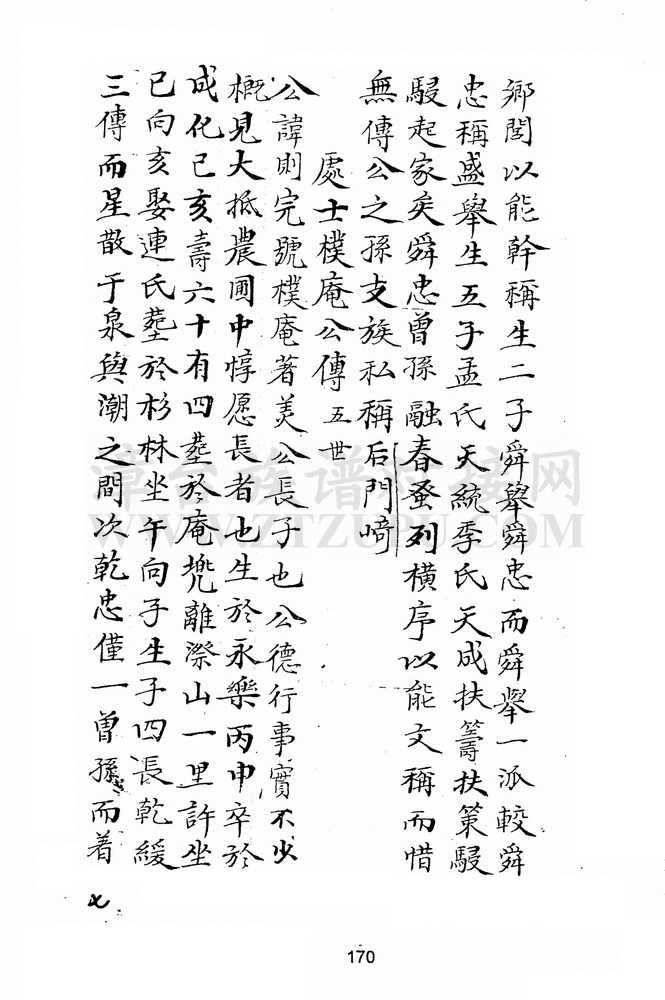 鄉閭以能幹稱生二子舜舉舜忠而舜舉一派較舜
忠稱盛舉生五子孟氏天統季氏天成扶籌扶策駸
駸起家矣舜忠曾孫融春蚤列橫序以能文稱而惜
無傳公之孫支族私稱后門崎
處士樸庵公傳 五世
公諱則完號樸庵著美公長子也公德行事實不少
概見大抵農圃中惇愿長者也生於永樂丙申卒於
成化己亥壽六十有四塟於庵兠離漈山一里許坐
巳向亥娶連氏塟於杉林坐午向子生子四長乾緩
三傳而星散于泉與潮之間次乾忠僅一曾孫而着
七
漳台族谱对接网
WWW.ZTZUPU.COM
170